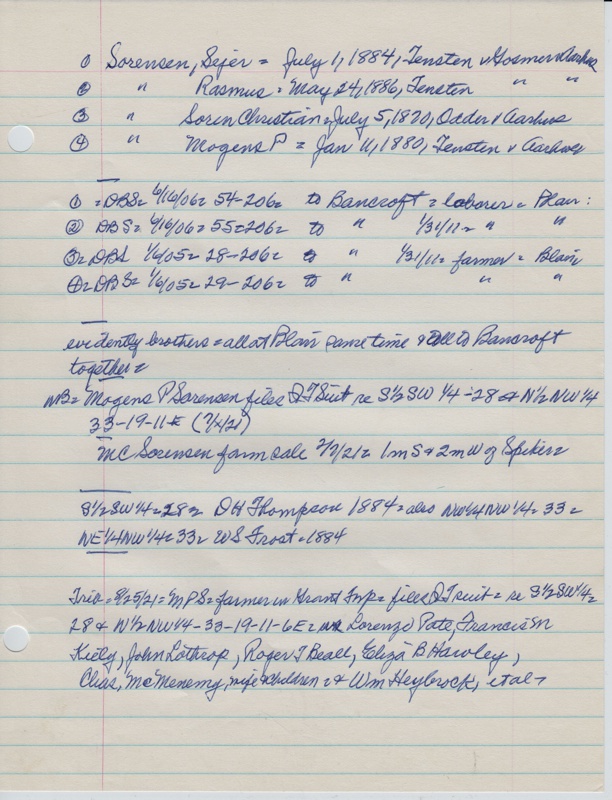 ① Sorensen, Sejer = July 1, 1884, Tensten v Gosmer v Aarhus
② " Rasmus = May 24, 1886, Tensten " "
③ " Soren Christian = July 5, 1870, Odder v Aarhus
④ " Mogens P = Jan 11, 1880, Tensten v Aarhus
① = DBS = 6/16/06 = 54-206 = to Bancroft = laborer = Blair:
② DBS = 6/16/06 = 55-206 = to " 1/31/11 = " "
③ = DBS 1/6/05 = 28-206 = to " 1/31/11 = farmer = Blair
④ = DBS = 1/6/05 = 29-206 = to " " "
evidently brothers = all at Blair same time & all to Bancroft
together =
NB = Mogens P Sorensen files QT Suit re S½SW¼-28 & N½NW¼
33-19-11E
MC Sorensen farm sale 2/7/21 = 1m S & 2m W of Spiker =
S½SW¼ = 28 = DH Thompson 1884 = also NW¼NW¼ = 33 =
NE¼NW¼ = 33 = WS Frost = 1884
= 8/25/21 = MPS = farmer in Grant Twp = files QT suit = re S½SW¼ =
28 & N½NW¼-33-19-11-6E = Lorenzo Pate, Francis M
Kiely, John Lothrop, Roger T Beall, Eliza B Hawley,
Chas, McMenemy, wife & children = & Wm Heybrock, et al =